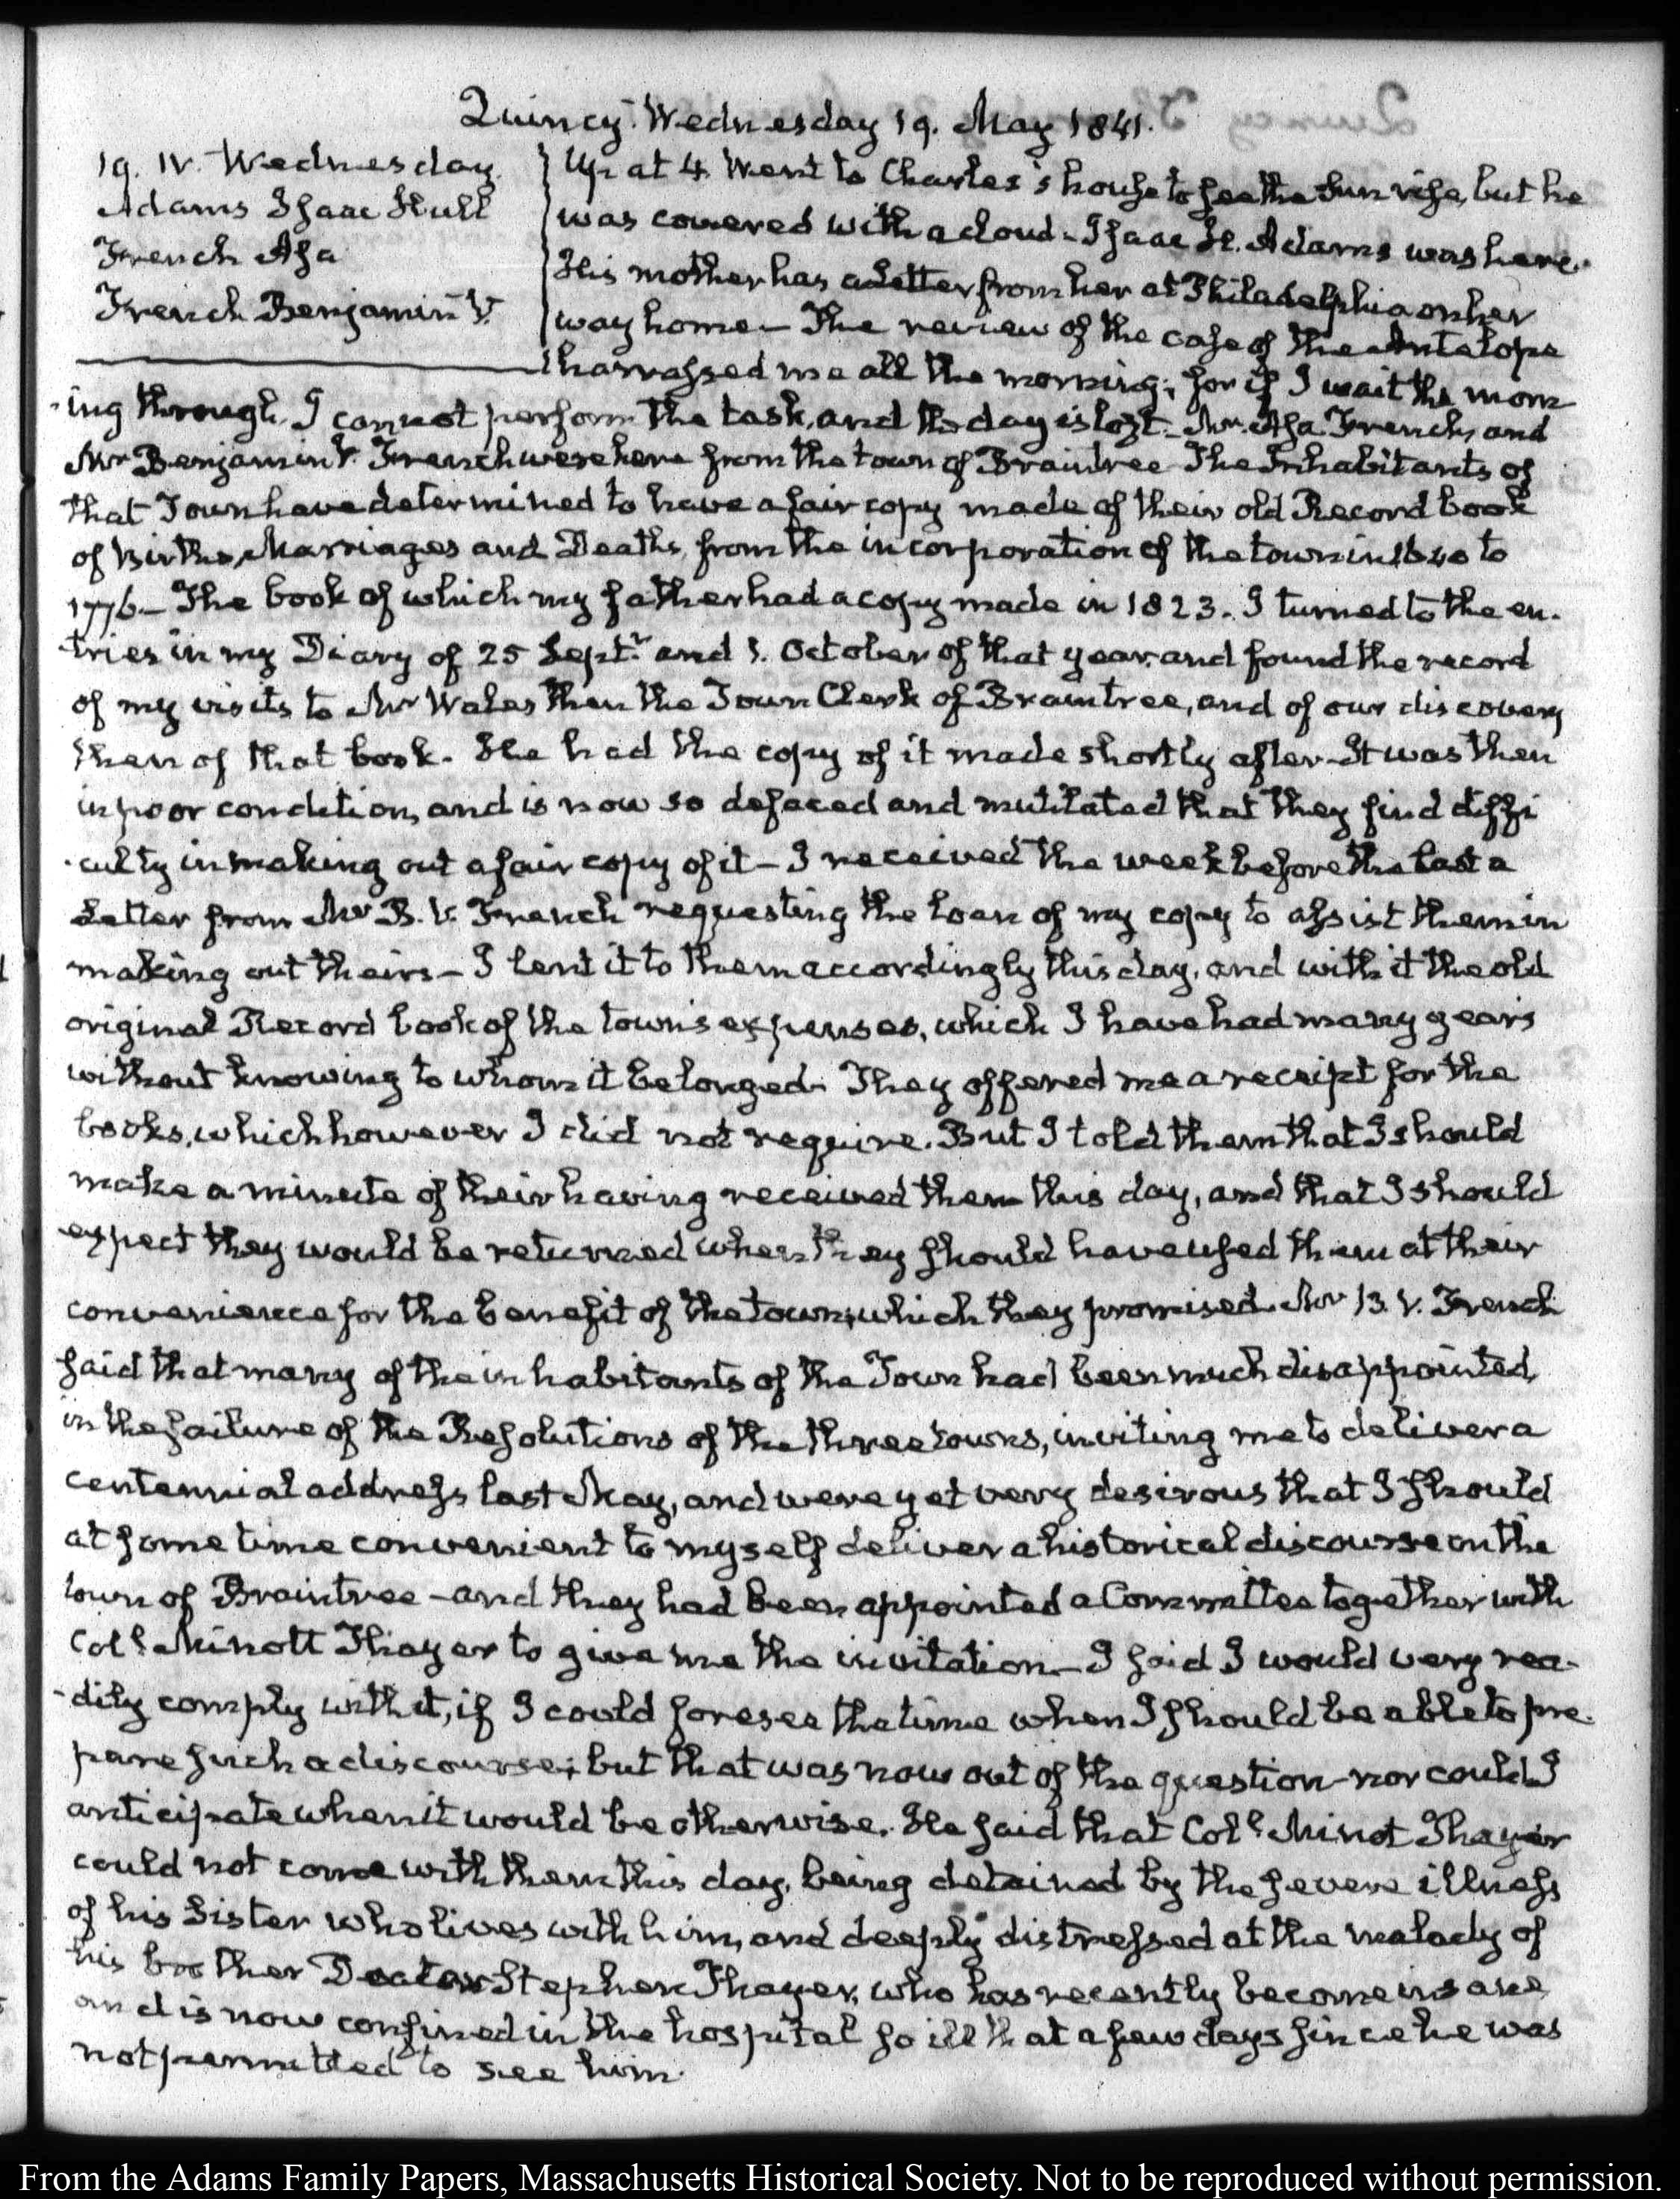 Quincy. Wednesday 19. May 1841.
19. IV. Wednesday.
Adams Isaac Hull
French Asa
French Benjamin V.
Up at 4. Went to Charles's house to see the Sun rise, but he
was covered with a cloud - Isaac H. Adams was here.
His mother has a Letter from her at Philadelphia on her
way home - The review of the case of the Antelope
harrassed me all the morning; for if I wait the morn
-ing through, I cannot perform the task, and the day is lost. - Mr. Asa French, and
Mr Benjamin V. French were here from the town of Braintree The Inhabitants of
that Town have determined to have a fair copy made of their old Record book
of Births, Marriages and Deaths, from the incorporation of the town in 1640 to
1776. - The book of which my father had a copy made in 1823. I turned to the en-
-tries in my Diary of 25 Septr. and 1. October of that year, and found the record
of my visits to Mr Wales then the Town Clerk of Braintree, and of our discovery
then of that book. He had the copy of it made shortly after - It was then
in poor condition, and is now so defaced and mutilated that they find diffi
-culty in making out a fair copy of it - I received the week before the last a
Letter from Mr B. V. French requesting the loan of my copy to assist them in
making out theirs - I lent it to them accordingly this day, and with it the old
original Record book of the town's expenses, which I have had many years
without knowing to whom it belonged. They offered me a receipt for the
books, which however I did not require. But I told them that I should
make a minute of their having received them this day, and that I should
expect they would be returned when they should have used them at their
convenience for the benefit of the town; which they promised. Mr B. V. French
said that many of the inhabitants of the Town had been much disappointed,
in the failure of the Resolutions of the three towns, inviting me to deliver a
centennial address last May, and were yet very desirous that I should
at some time convenient to myself deliver a historical discourse on the
town of Braintree - and they had been appointed a Committee together with
Coll. Minott Thayer to give me the invitation - I said I would very rea-
-dily comply with it, if I could foresee the time when I should be able to pre-
pare such a discourse; but that was now out of the question - nor could I
anticipate when it would be otherwise. He said that Coll. Minot Thayer
could not come with them this day, being detained by the severe illness
of his Sister who lives with him, and deeply distressed at the malady of
his brother Doctor Stephen Thayer, who has recently become insane
and is now confined in the hospital so ill that a few days since he was
not permitted to see him.
From the Adams Family Papers, Massachusetts Historical Society. Not to be reproduced without permission.